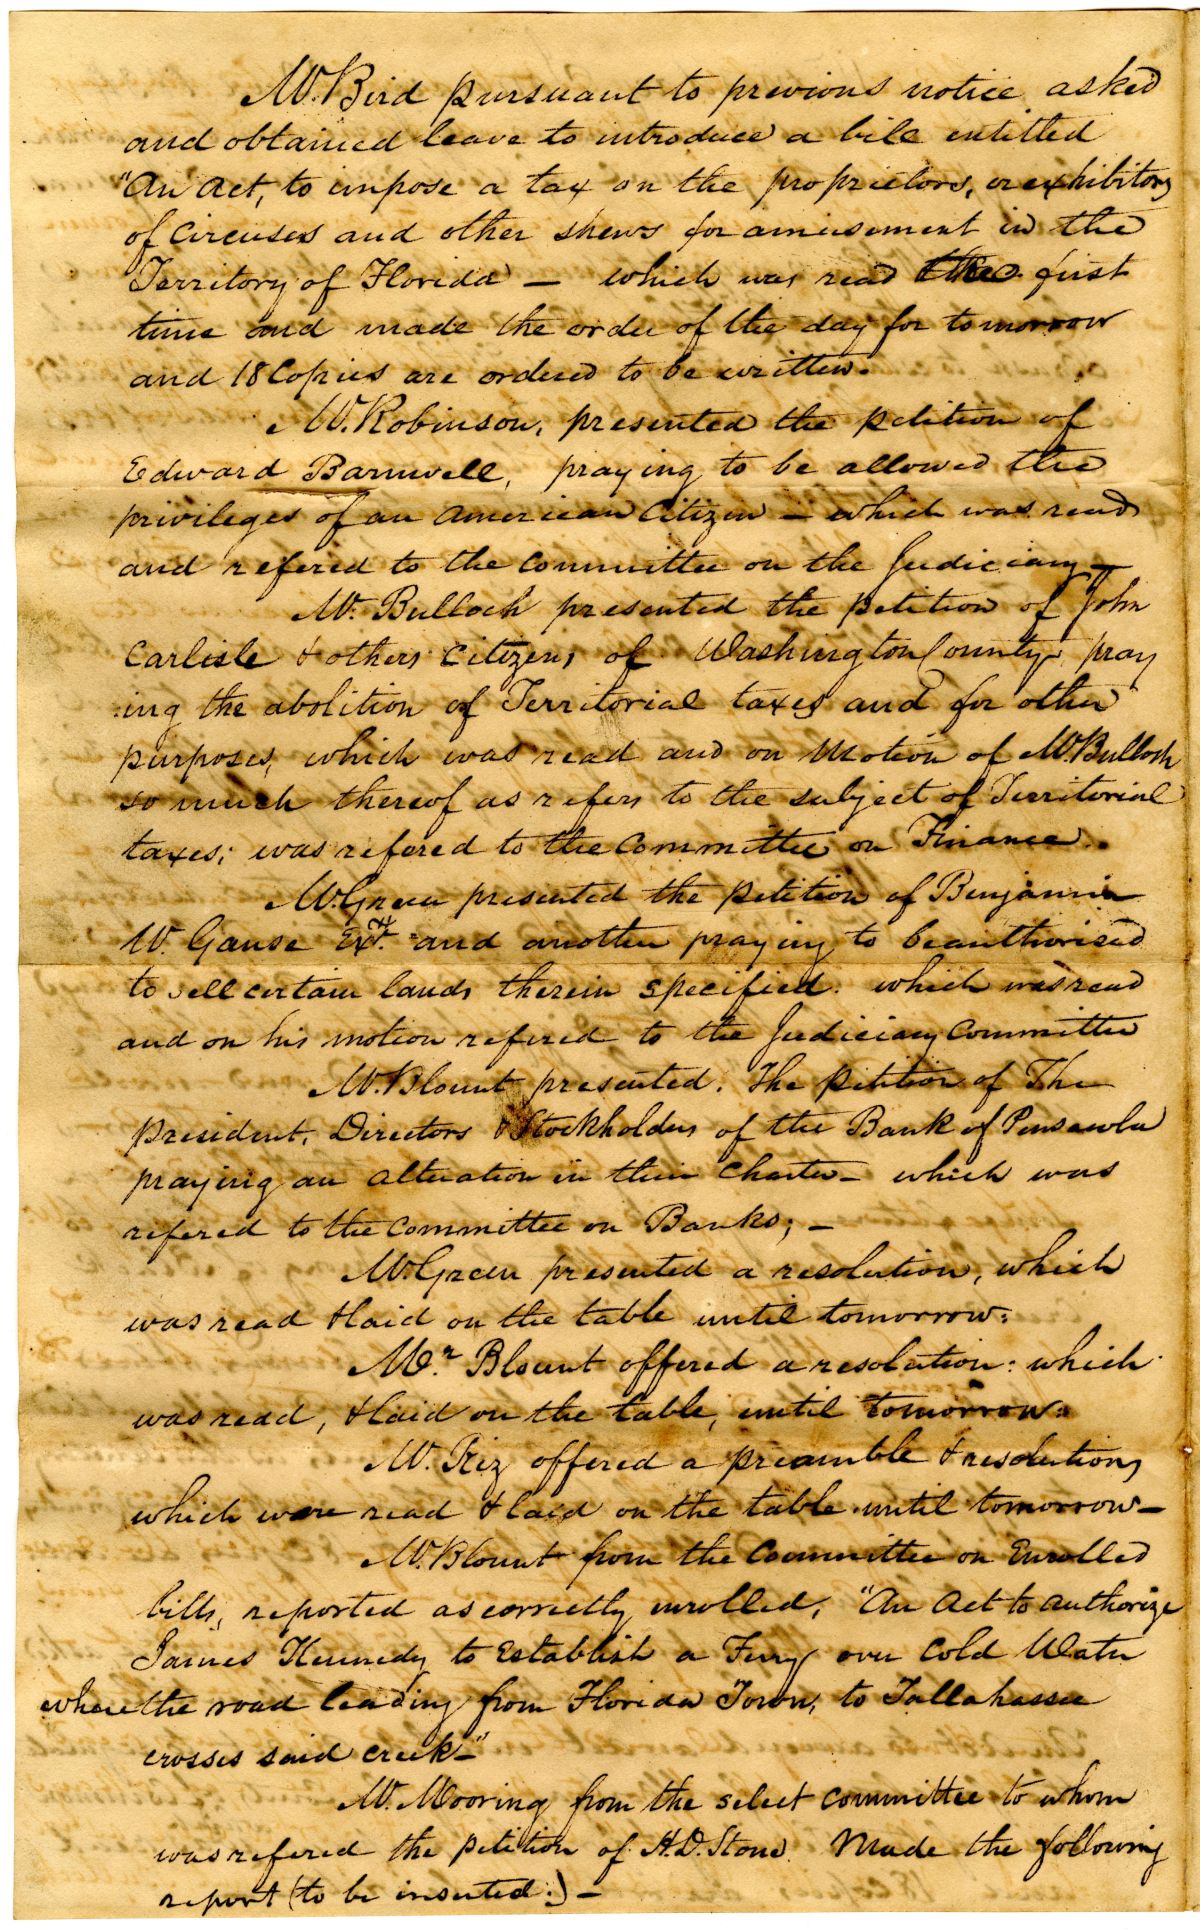 Mr. Bird pursuant to previous notice asked
and obtained leave to introduce a bill entitled
"An Act, to impose a tax on the proprietors, or exhibitors
of Circuses and other shews for amusement in the
Territory of Florida — which was read the first
time and made the order of the day for tomorrow
and 18 Copies are ordered to be written.
Mr. Robinson, presented the petition of
Edward Barnwell, praying to be allowed the
privileges of an American Citizen — which was read
and refered to the Committee on the Judiciary —
Mr. Bulloch presented the petition of John
Carlisle & others Citizens of Washington County, pray
:ing the abolition of Territorial taxes and for other
purposes, which was read and on Motion of Mr. Bulloch
so much thereof as refers to the subject of Territorial
taxes; was refered to the Committee on Finance.
Mr. Green presented the petition of Benjamin
W. Gause Exr. and another praying to be authorised
to sell certain lands therein specified. which was read
and on his motion refered to the Judiciary Committee
Mr. Blount presented. The petition of The
President, Directors & Stockholders of the Bank of Pensacola
praying an alteration in their Charter — which was
refered to the Committee on Banks; —
Mr. Green presented a resolution, which
was read & laid on the table until tomorrow:
Mr. Blount offered a resolution: which
was read, & laid on the table, until tomorrow:
Mr. Riz offered a preamble & resolutions
which were read & laid on the table until tomorrow —
Mr. Blount from the Committee on Enrolled
bills, reported as correctly enrolled, "An Act to authorize
James Kennedy to Establish a Ferry over Cold Water
where the road leading from Florida Town, to Tallahassee
crosses said creek —"
Mr. Mooring from the select committee to whom
was refered the petition of H.D. Stone. Made the following
report (to be inserted.) —